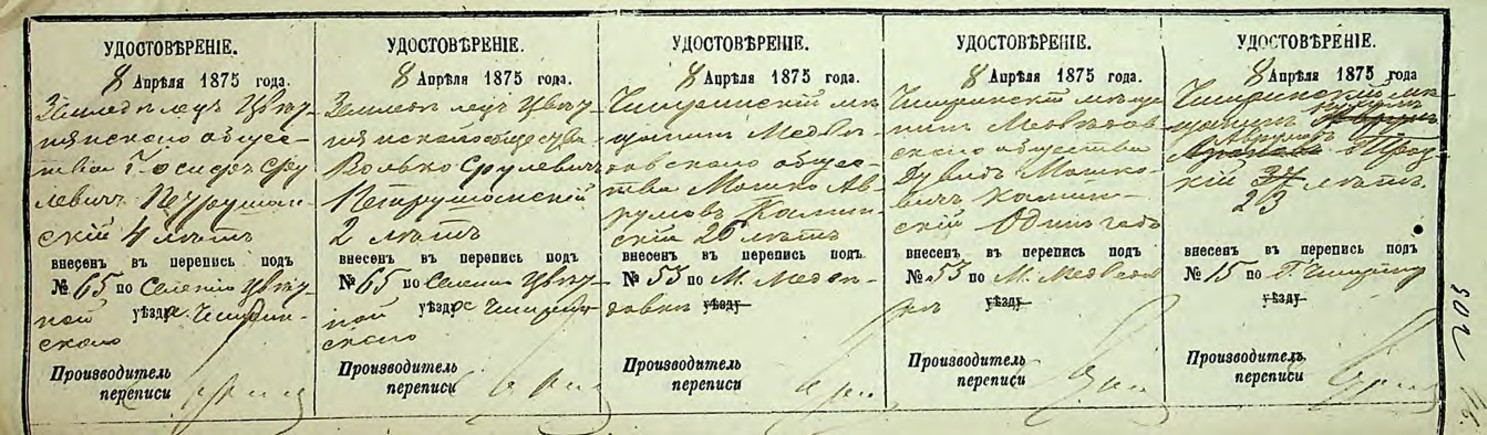 УДОСТОВѢРЕНІЕ.
8 Апрѣля 1875 года.
Земледѣлецъ Цвѣту-
пянского общес-
тва Іосифъ Сру-
левичъ Петрушан-
скій 4 лѣтъ
внесенъ въ перепись подъ
№ 65 по Селенію Цвѣт-
ной уѣзда Чигирин-
скаго
Производитель
переписи
УДОСТОВѢРЕНІЕ.
8 Апрѣля 1875 года.
Земледѣлецъ Цвѣту-
пянскаго общества
Волько Срулевичъ
Петрушанскій
2 лѣтъ
внесенъ въ перепись подъ
№ 65 по Селенію Цвѣт-
ной уѣзда Чигирин-
скаго
Производитель
переписи
УДОСТОВѢРЕНІЕ.
8 Апрѣля 1875 года.
Чигиринскій мѣ-
щанинъ Медвѣ-
довского общес-
тва Мошко Ав-
румовъ Камин-
скій 26 лѣтъ
внесенъ въ перепись подъ
№ 53 по М. Медвѣ-
довки уѣзду
Производитель
переписи
УДОСТОВѢРЕНІЕ.
8 Апрѣля 1875 года.
Чигиринскій мѣща-
нинъ Медвѣдов-
ского общества
Дувидъ Мошко-
вичъ Камин-
скій Одинъ годъ
внесенъ въ перепись подъ
№ 53 по М. Медвѣдов
кѣ уѣзду
Производитель
переписи
УДОСТОВѢРЕНІЕ.
8 Апрѣля 1875 года
Чигиринскій мѣ-
щанинъ
Аврумовъ
скій 37 лѣтъ.
23
внесенъ въ перепись подъ
№ 15 по Г. Чигирину
уѣзду
Производитель
переписи
203